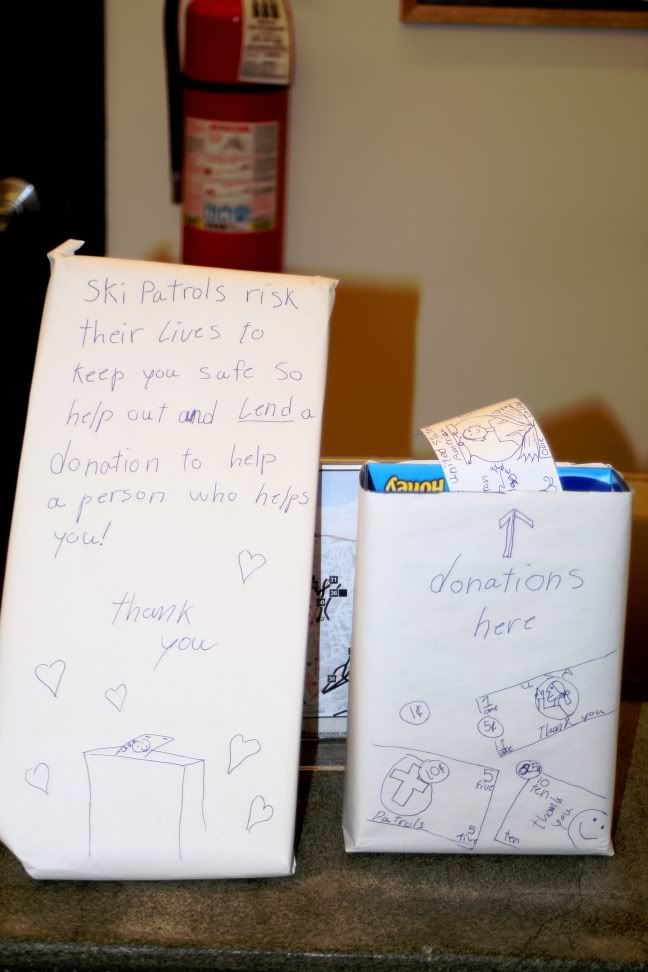 Ski Patrols risk
their Lives to
keep you safe so
help out and Lend a
donation to help
a person who helps
you!
thank
you
Honey
United
America
one
donations
here
1¢
1
one
U
A
5¢
Thank you
1
10¢
5
five
Patrols
5
five
25¢
10
ten
thank
you
ten
31
36